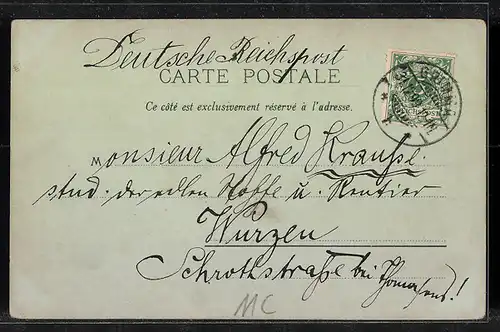 Deutsche Reichspost
CARTE POSTALE
Ce côté est exclusivement réservé à l'adresse.
Monsieur Alfred Krauße.
stud. der edlen Stoffe u. Rentier
Wurzen
Schrothstraße bei Thomas
MC